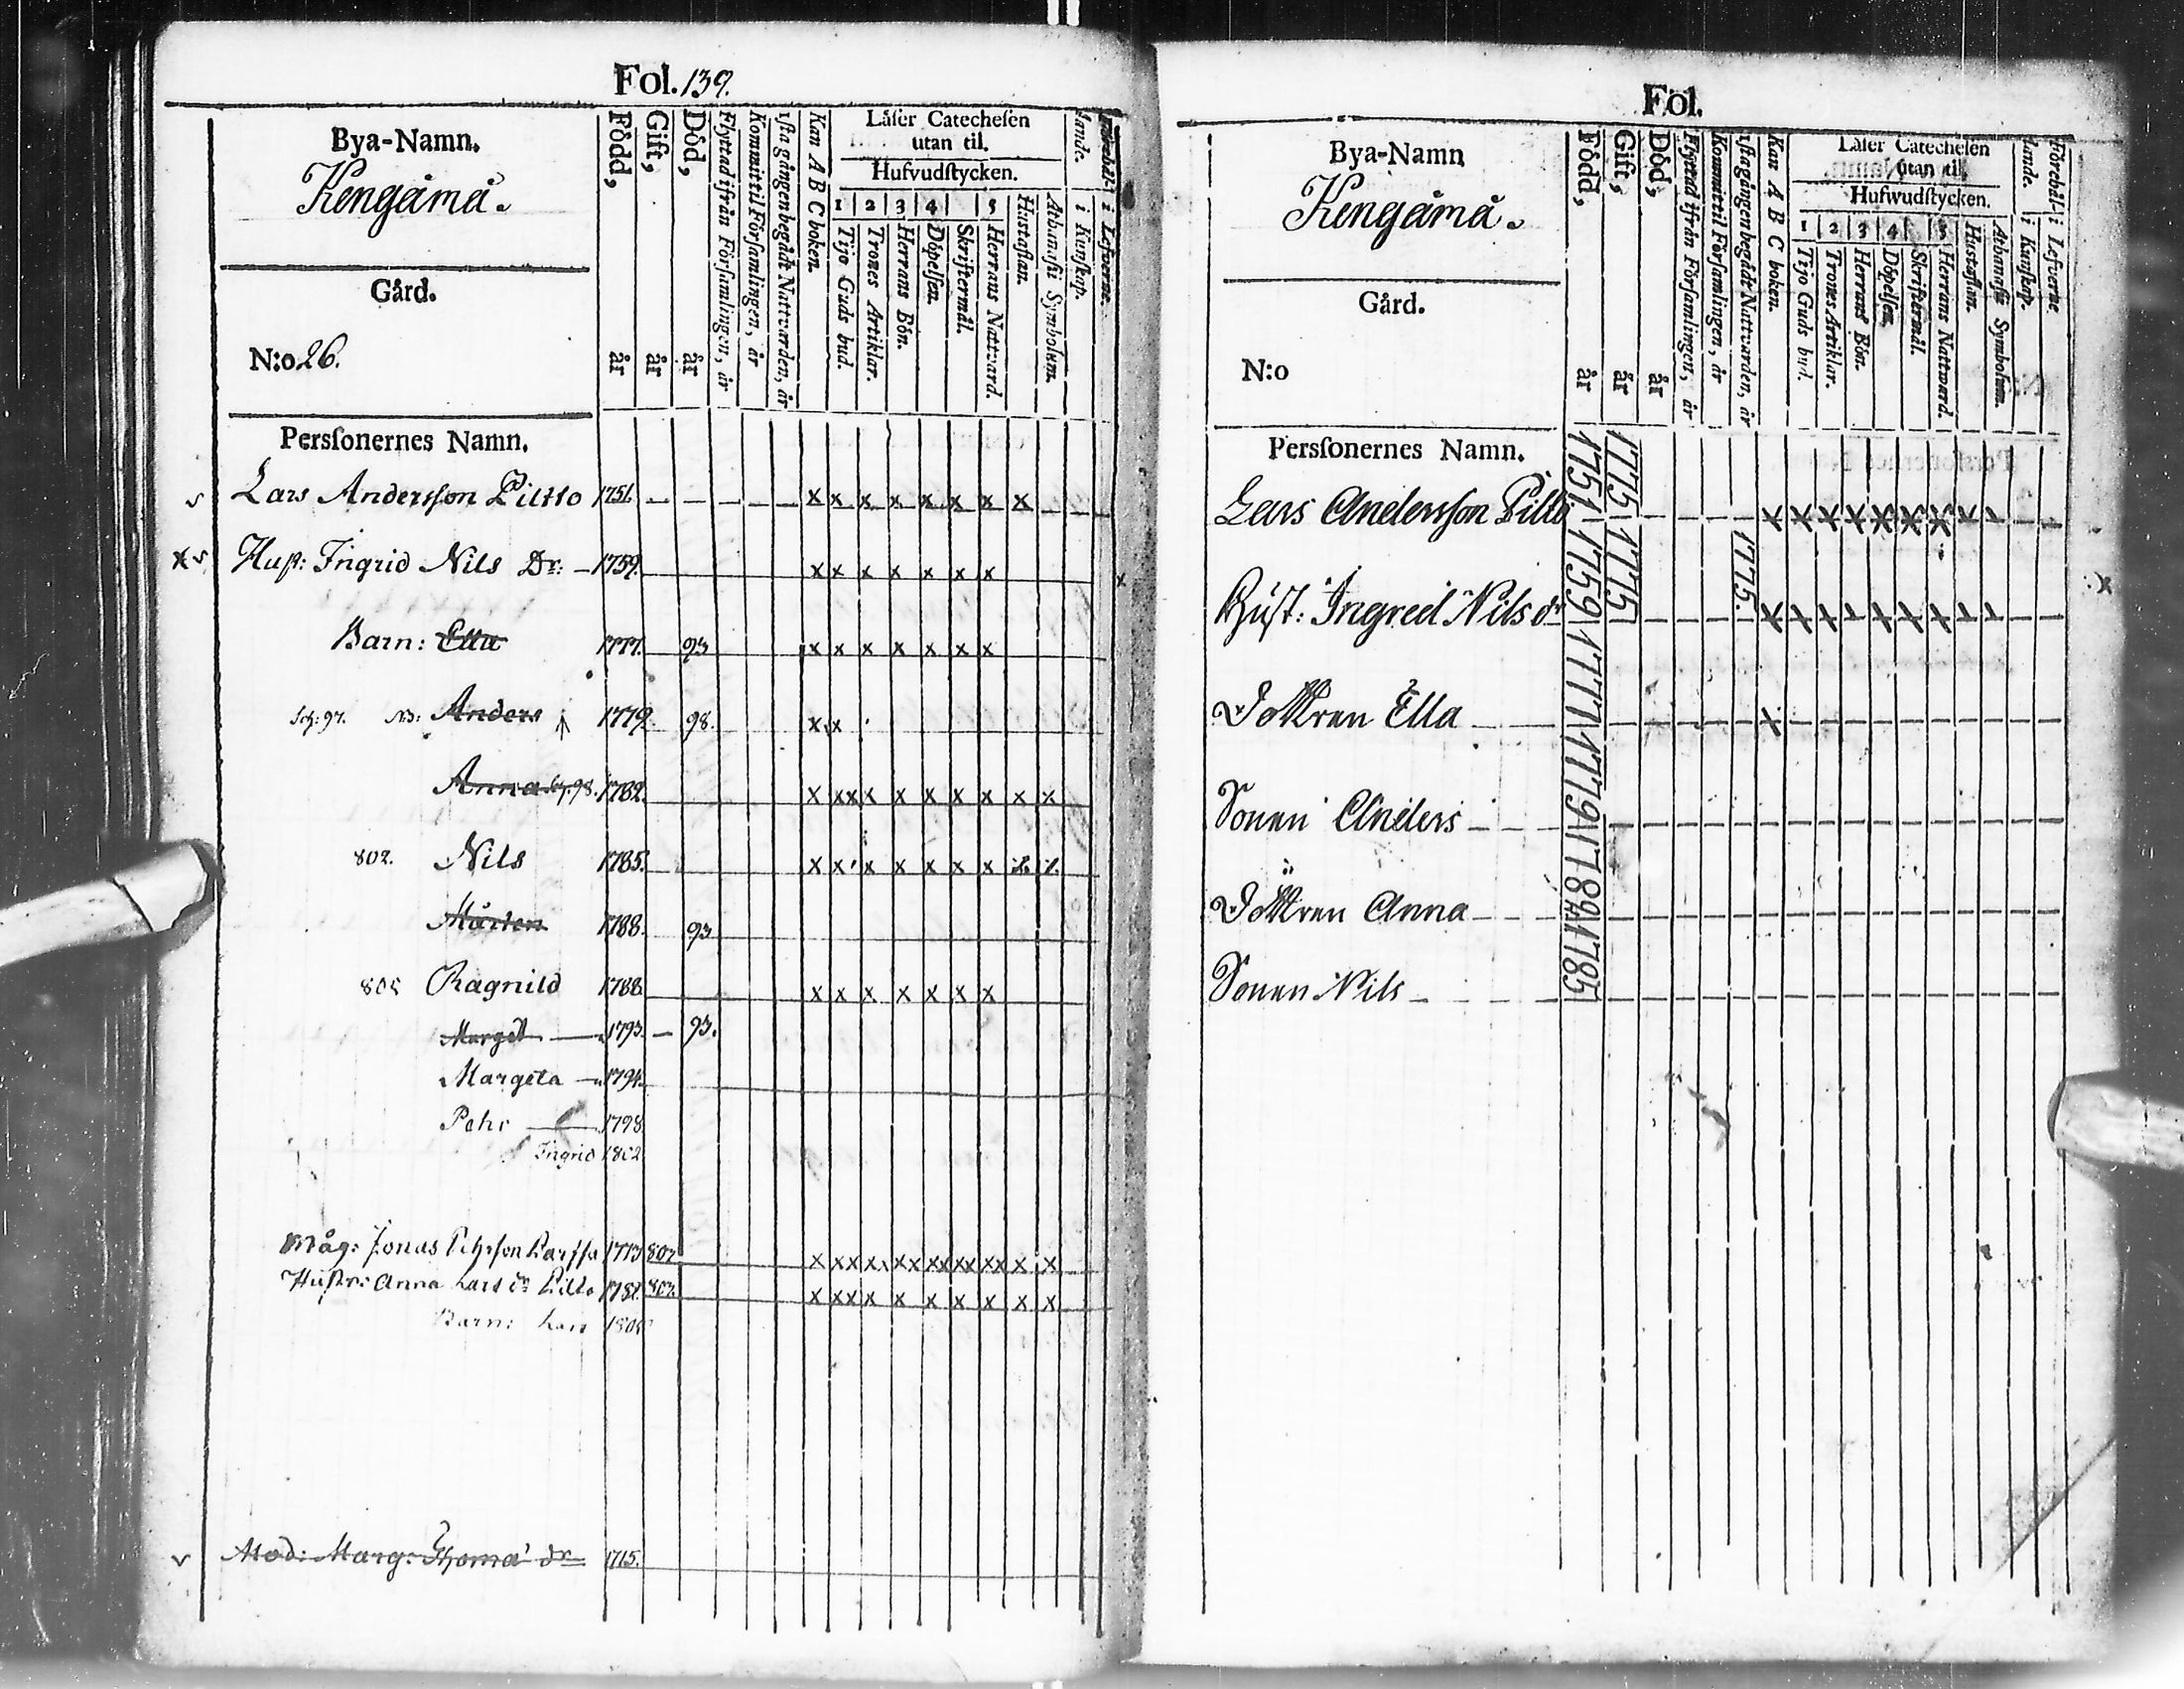 Fol. 139.
Bya-Namn.
Kengämä.
Gård.
N:o 26.
Persſonernes Namn.
Född, år
Gift, år
Död, år
Flyttad ifrån Förſamlingen, år
Kommit til Förſamlingen, år
1ſta gången begådt Nattvarden, år
Kan A B C boken.
Låſer Catecheſen
utan til.
Hufvudſtycken.
1 2 3 4 5
Tijo Guds bud.
Trones Artiklar.
Herrans Bön.
Döpelſen.
Skriftermål.
Herrans Nattvard.
Huſtaflan.
Athanaſii Symbolum.
i Kunſkap.
i Lefverne.
v Lars Andersſon Piltto 1751. — — — — — x x x x x x x x
x v Huſt: Ingrid Nils Dr: — 1759. x x x x x x x
Barn: Ella 1777. 93 x x x x x x x
NB: Anders 1779. 98. x x
Anna 98. 1782. x xx x x x x x x x
802. Nils 1785. x x x x x x x
Mårten 1788. 93
Ragnild 1788. x x x x x x x
Marget — 1793. — 93.
Margeta — 1794.
Pehr — 1798
Ingrid 1802
Måg: Jonas 1773 x xx x xx xx xx xx x x
Huſtr: Anna Lars dr Pilto 1782. 803. x xx x x x x x x x
Barn: Lars
v Mod: Marg: Thomæ dr 1715.
Fol.
Bya-Namn
Kengämä.
Gård.
N:o
Persſonernes Namn.
Född, år
Gift, år
Död, år
Flyttad ifrån Förſamlingen, år
Kommit til Förſamlingen, år
1ſta gången begådt Nattvarden, år
Kan A B C boken.
Låſer Catecheſen
utan til.
Hufwudſtycken.
1 2 3 4 5
Tijo Gud bud.
Trones Artiklar.
Herrans Bön.
Döpelſen.
Skriftermål.
Herrans Nattward.
Huſtaflan.
Athanaſii Symbolum.
Förehål-
lande.
i Kunſkap.
i Lefverne
Lars Andersſon Pilto 1751 1775 — — — — x x x x x x x x x
Huſt: Ingred Nils dr 1759 1775 — — — 1775. x x x x x x x x x
Dottren Ella 1777 x
Sonen Anders 1779
Dottren Anna 1782
Sonen Nils 1785